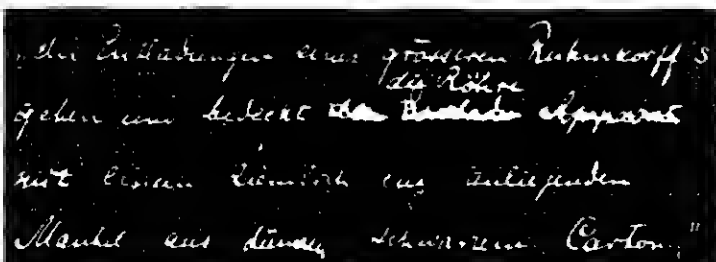 „die Entladungen eines grösseren Ruhmkorff's
die Röhre
gehen und bedeckt Apparat
mit einem ziemlich eng anliegenden
Mantel aus dünnem, schwarzem Carton,"